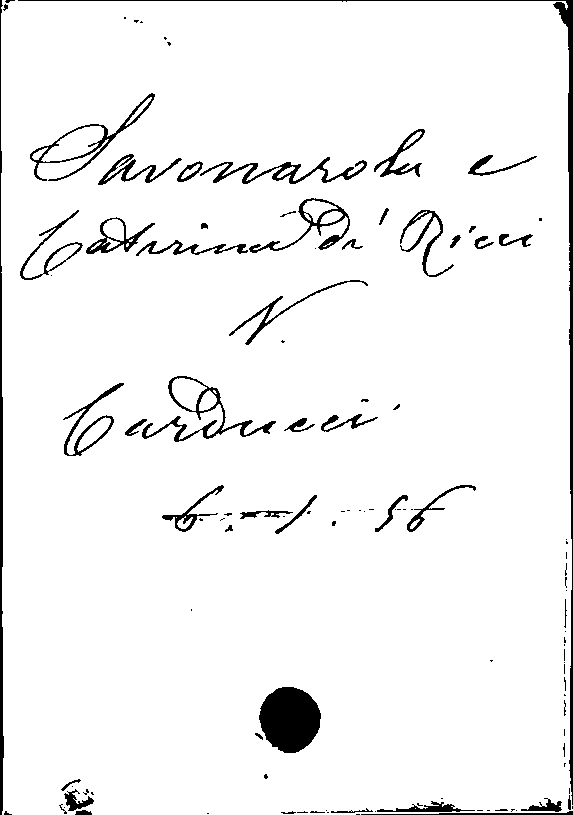 Savonarola e
Caterina de' Ricci
V.
Carducci
6. 1. 56